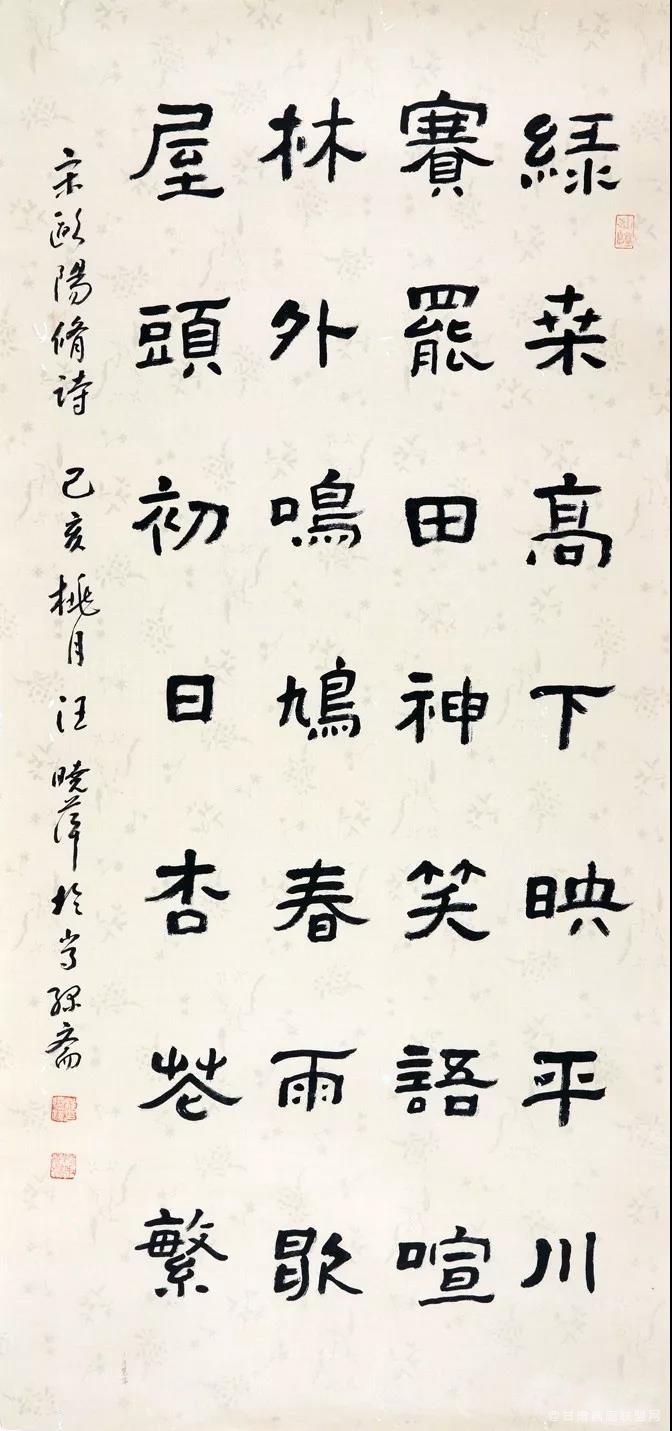 綠桑高下映平川
賽罷田神笑語喧
林外鳴鳩春雨歇
屋頭初日杏花繁
宋歐陽脩詩 己亥桃月汪曉萍於